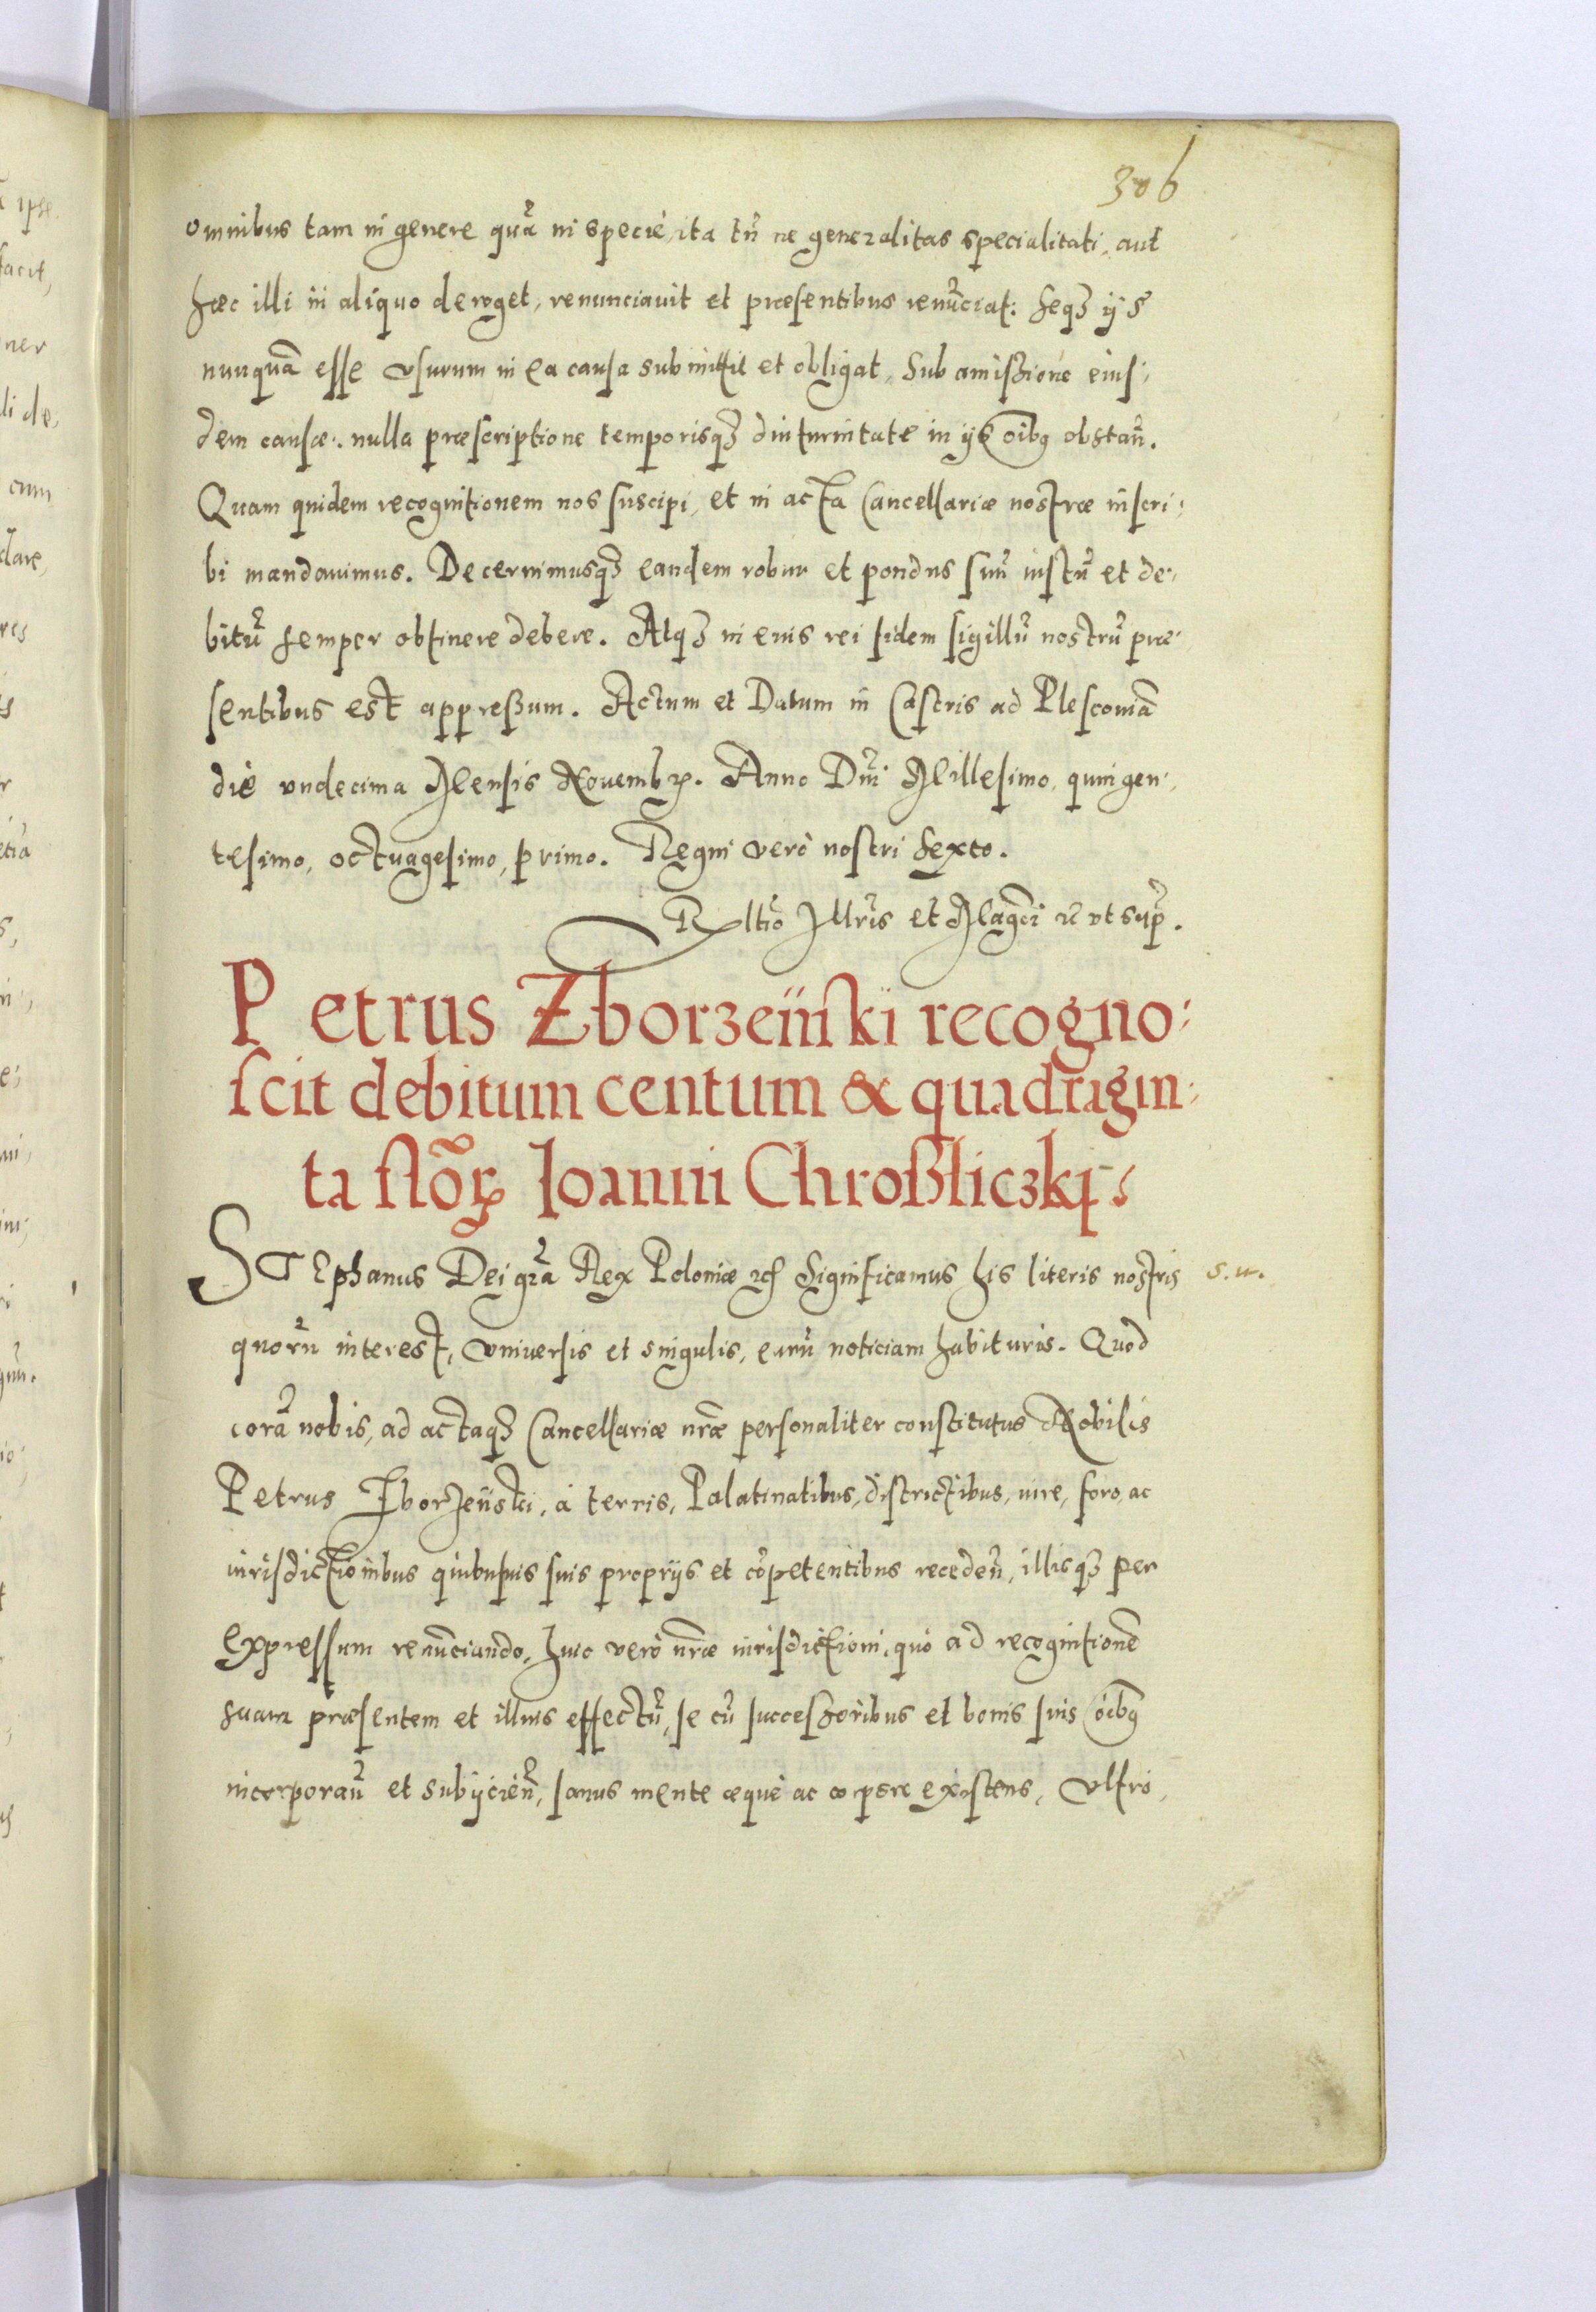 306
omnibus tam in genere quã in specie, ita tñ ne generalitas specialitati, aut
hæc illi in aliquo deroget, renunciauit et præsentibus renũciat: seqȝ ijs
nunquã esse vsurum in ea causa submittit et obligat, sub amissione eius-
dem causæ: nulla præscriptione temporisqȝ diuturnitate in ijs oĩbꝯ obstañ.
Quam quidem recognitionem nos suscipi, et in acta Cancellariæ nostræ inscri-
bi mandauimus. Decernimusqȝ eandem robur et pondus suũ iustũ et de-
bitũ semper obtinere debere. Atqȝ in eius rei fidem sigillũ nostrũ præ-
sentibus est appressum. Actum et Datum in Castris ad Plescouiã
die vndecima Mensis Nouembꝝ. Anno Dñi Millesimo, quingen-
tesimo, octuagesimo, primo. Regni verò nostri sexto.
Rltio Illris et Magci ꝛc vt sup.
Petrus Zborzeński recogno-
scit debitum centum & quadragin-
ta flõꝝ Ioanni Chroßliczki
STephanus Dei grã Rex Poloniæ ꝛc Significamus his literis nostris s.u.
quorũ interest, vniuersis et singulis, earũ noticiam habituris. Quod
corã nobis, ad actaqȝ Cancellariæ nræ personaliter constitutus Nobilis
Petrus Zborzeński, à terris, Palatinatibus, districtibus, iure, foro, ac
iurisdictionibus quibusuis suis proprijs et cõpetentibus recedeñ, illisqȝ per
expressum renũciando, huic verò nræ iurisdictioni, quò ad recognitionẽ
suam præsentem et illius effectũ, se cũ successoribus et bonis suis oĩbꝯ
incorporañ et subijcieñ, sanus mente æquè ac corpore existens, vltrò,